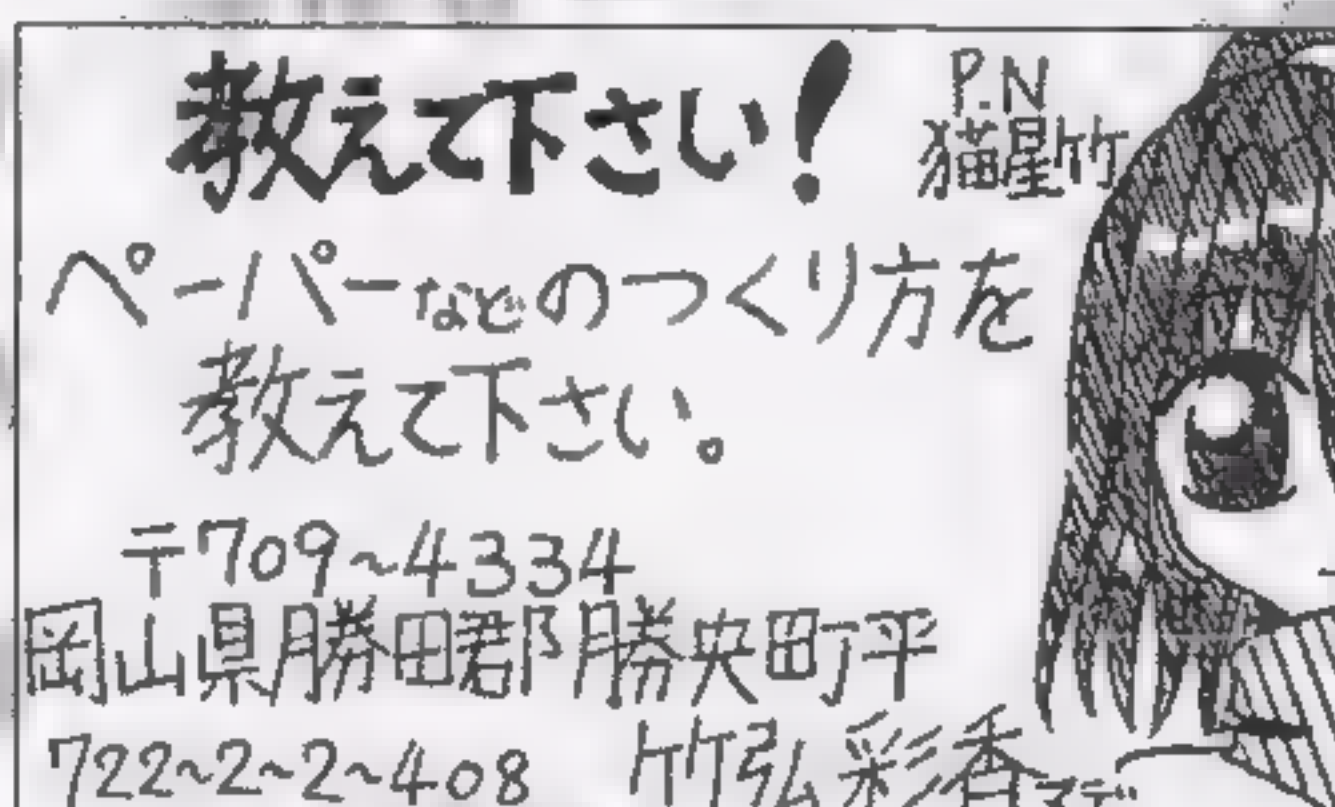 教えて下さい!
P.N
猫星竹
ペーパーなどのつくり方を
教えて下さい。
〒709~4334
岡山県勝田郡勝央町平
722~2~2~408 竹弘彩香マデ